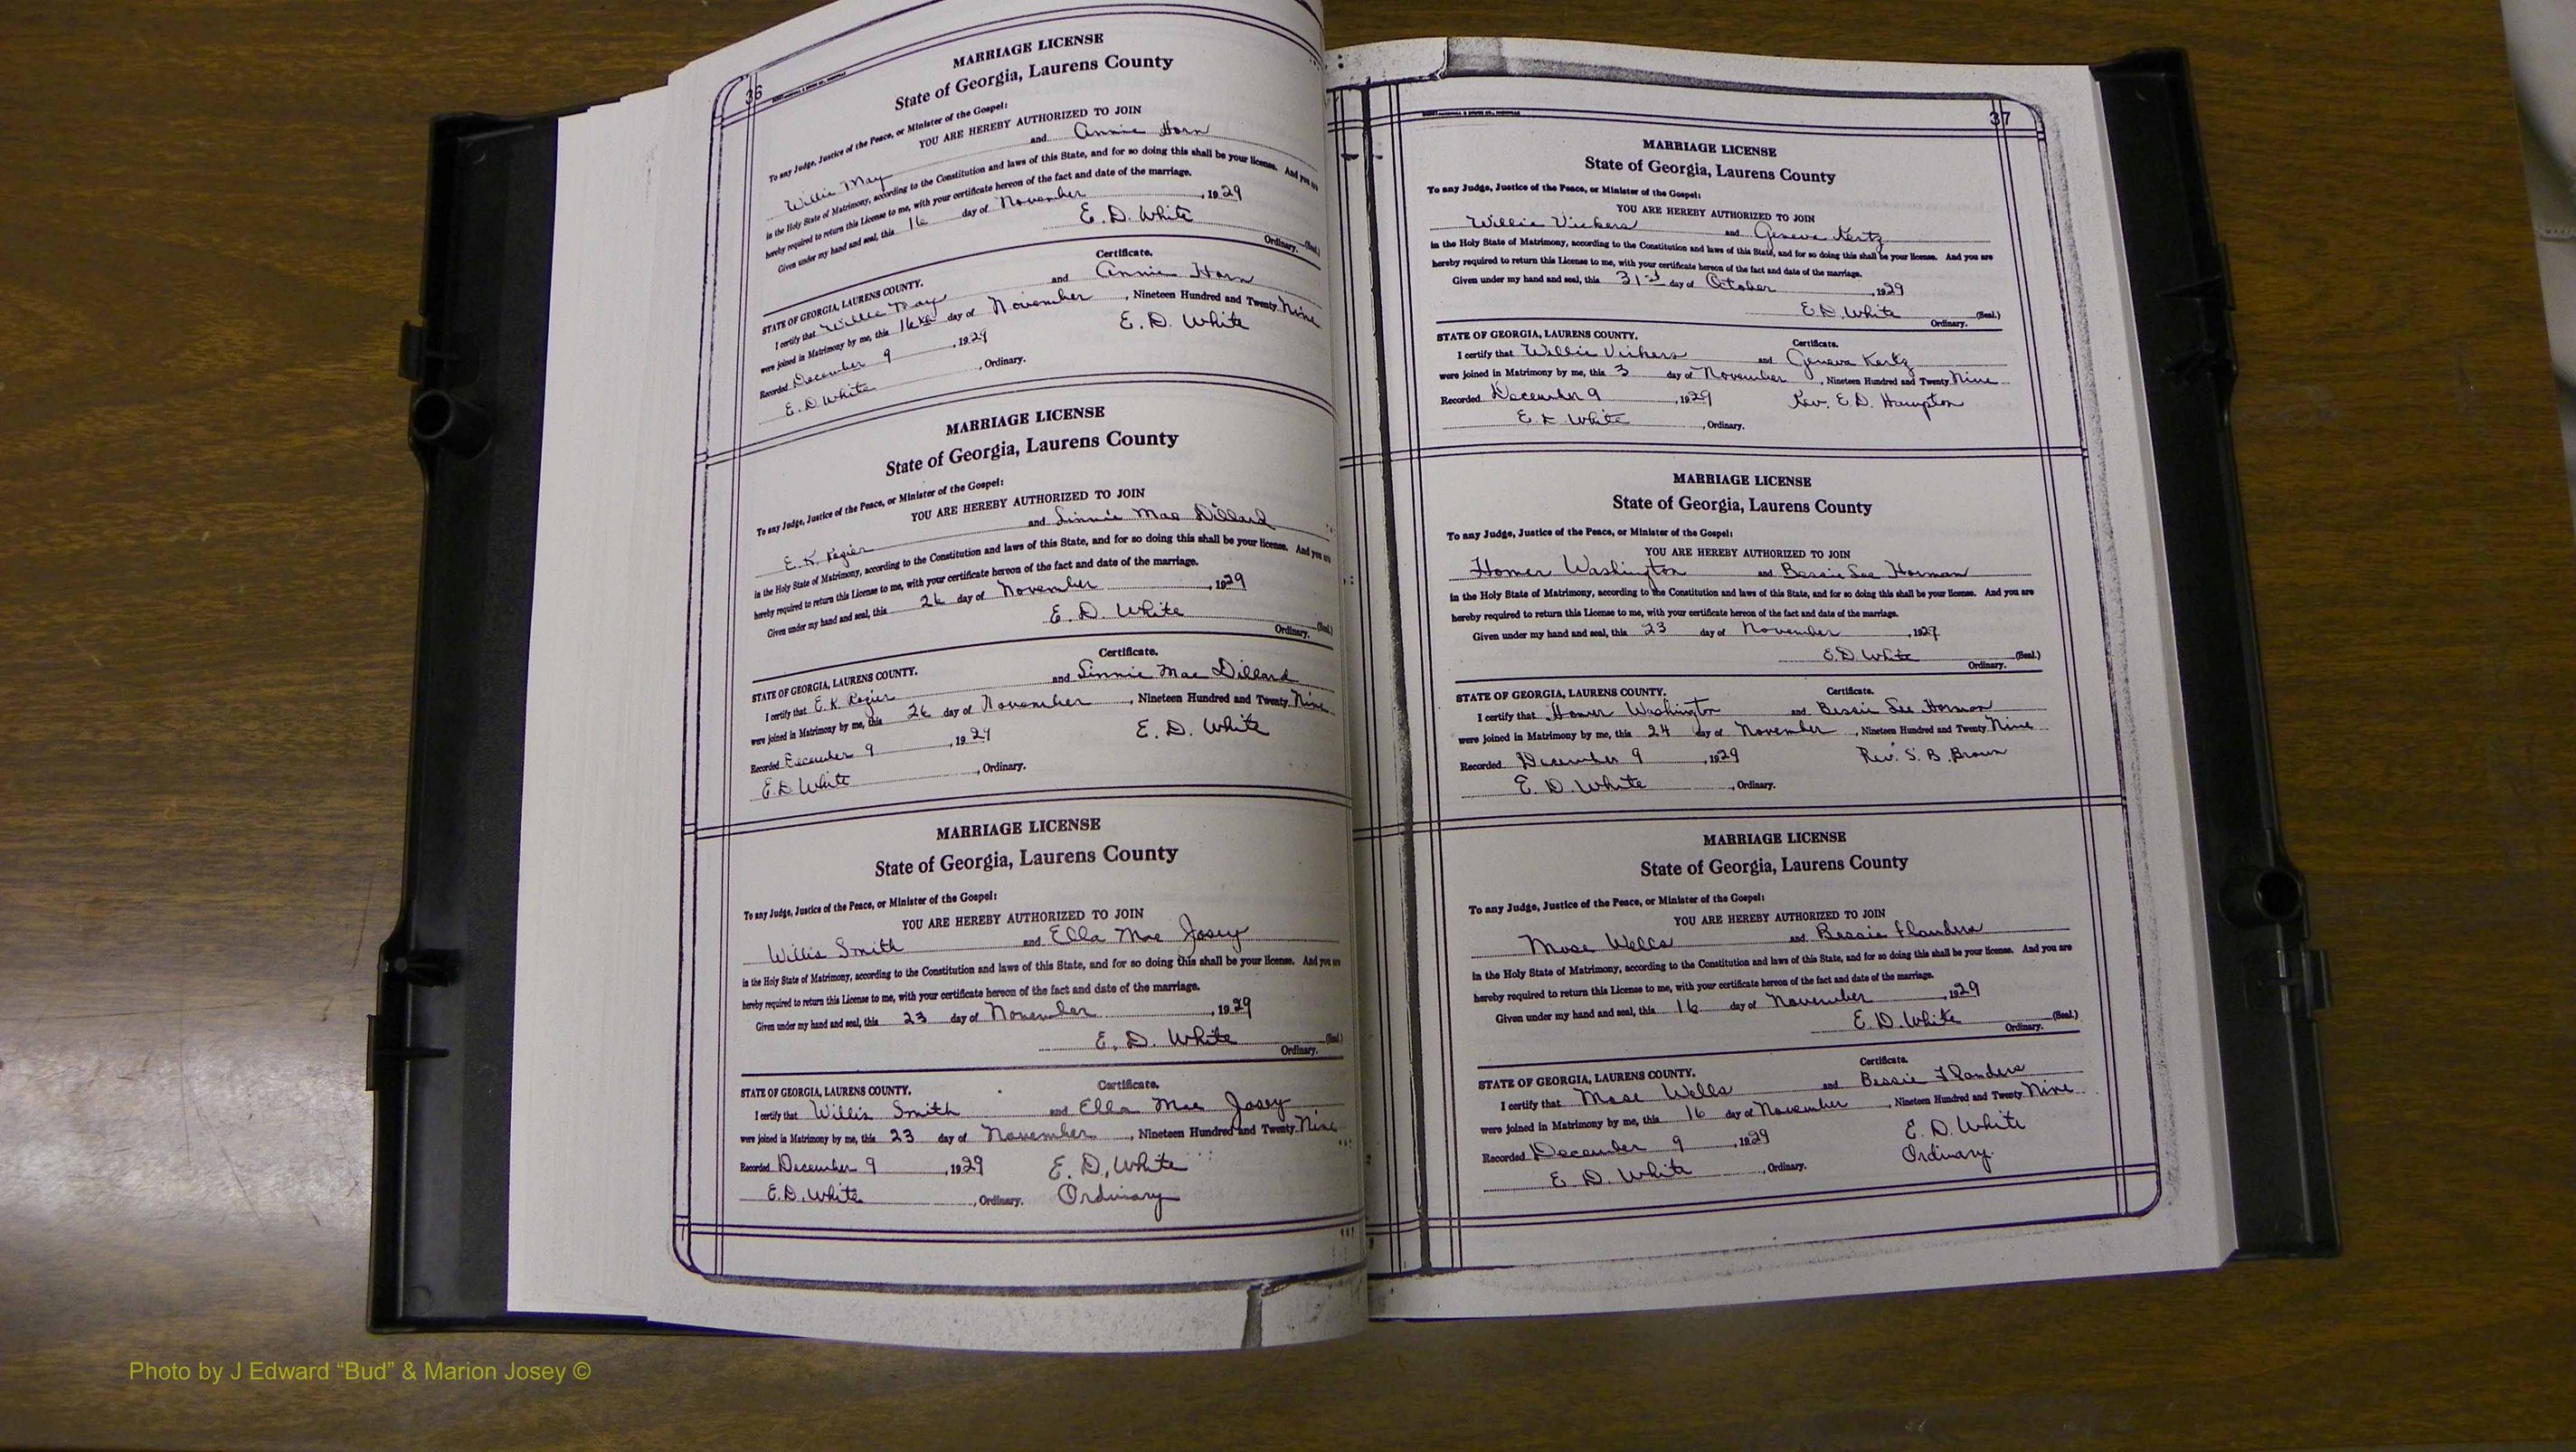 36
MARRIAGE LICENSE
State of Georgia, Laurens County
To any Judge, Justice of the Peace, or Minister of the Gospel:
YOU ARE HEREBY AUTHORIZED TO JOIN
Willie May and Annie Horn
in the Holy State of Matrimony, according to the Constitution and laws of this State, and for so doing this shall be your license. And you are
hereby required to return this License to me, with your certificate hereon of the fact and date of the marriage.
Given under my hand and seal, this 16 day of November, 1929
E. D. White (Seal.)
Ordinary.
Certificate.
STATE OF GEORGIA, LAURENS COUNTY.
I certify that Willie May and Annie Horn
were joined in Matrimony by me, this 16th day of November, Nineteen Hundred and Twenty Nine
Recorded December 9, 1929 E. D. White
E. D White, Ordinary.
MARRIAGE LICENSE
State of Georgia, Laurens County
To any Judge, Justice of the Peace, or Minister of the Gospel:
YOU ARE HEREBY AUTHORIZED TO JOIN
E. K. Rozier and Linnie Mae Dillard
in the Holy State of Matrimony, according to the Constitution and laws of this State, and for so doing this shall be your license. And you are
hereby required to return this License to me, with your certificate hereon of the fact and date of the marriage.
Given under my hand and seal, this 26 day of November, 1929
E. D. White (Seal.)
Ordinary.
Certificate.
STATE OF GEORGIA, LAURENS COUNTY.
I certify that E. K. Rozier and Linnie Mae Dillard
were joined in Matrimony by me, this 26 day of November, Nineteen Hundred and Twenty Nine
Recorded December 9, 1929 E. D. White
E. D White, Ordinary.
MARRIAGE LICENSE
State of Georgia, Laurens County
To any Judge, Justice of the Peace, or Minister of the Gospel:
YOU ARE HEREBY AUTHORIZED TO JOIN
Willis Smith and Ella Mae Josey
in the Holy State of Matrimony, according to the Constitution and laws of this State, and for so doing this shall be your license. And you are
hereby required to return this License to me, with your certificate hereon of the fact and date of the marriage.
Given under my hand and seal, this 23 day of November, 1929
E. D. White (Seal.)
Ordinary.
Certificate.
STATE OF GEORGIA, LAURENS COUNTY.
I certify that Willis Smith and Ella Mae Josey
were joined in Matrimony by me, this 23 day of November, Nineteen Hundred and Twenty Nine
Recorded December 9, 1929 E. D. White
E. D. White, Ordinary. Ordinary
37
MARRIAGE LICENSE
State of Georgia, Laurens County
To any Judge, Justice of the Peace, or Minister of the Gospel:
YOU ARE HEREBY AUTHORIZED TO JOIN
Willie Vickers and Geneva Kertz
in the Holy State of Matrimony, according to the Constitution and laws of this State, and for so doing this shall be your license. And you are
hereby required to return this License to me, with your certificate hereon of the fact and date of the marriage.
Given under my hand and seal, this 31st day of October, 1929
E. D. White (Seal.)
Ordinary.
Certificate.
STATE OF GEORGIA, LAURENS COUNTY.
I certify that Willie Vickers and Geneva Kertz
were joined in Matrimony by me, this 3 day of November, Nineteen Hundred and Twenty Nine
Recorded December 9, 1929 Rev. E. D. Hampton
E. D. White, Ordinary.
MARRIAGE LICENSE
State of Georgia, Laurens County
To any Judge, Justice of the Peace, or Minister of the Gospel:
YOU ARE HEREBY AUTHORIZED TO JOIN
Homer Washington and Bessie Lee Horman
in the Holy State of Matrimony, according to the Constitution and laws of this State, and for so doing this shall be your license. And you are
hereby required to return this License to me, with your certificate hereon of the fact and date of the marriage.
Given under my hand and seal, this 23 day of November, 1929
E. D. White (Seal.)
Ordinary.
Certificate.
STATE OF GEORGIA, LAURENS COUNTY.
I certify that Homer Washington and Bessie Lee Horman
were joined in Matrimony by me, this 24 day of November, Nineteen Hundred and Twenty Nine
Recorded December 9, 1929 Rev. S. B. Brown
E. D. White, Ordinary.
MARRIAGE LICENSE
State of Georgia, Laurens County
To any Judge, Justice of the Peace, or Minister of the Gospel:
YOU ARE HEREBY AUTHORIZED TO JOIN
Mose Wells and Bessie Flanders
in the Holy State of Matrimony, according to the Constitution and laws of this State, and for so doing this shall be your license. And you are
hereby required to return this License to me, with your certificate hereon of the fact and date of the marriage.
Given under my hand and seal, this 16 day of November, 1929
E. D. White (Seal.)
Ordinary.
Certificate.
STATE OF GEORGIA, LAURENS COUNTY.
I certify that Mose Wells and Bessie Flanders
were joined in Matrimony by me, this 16 day of November, Nineteen Hundred and Twenty Nine
Recorded December 9, 1929 E. D. White
E. D. White, Ordinary. Ordinary.
Photo by J Edward “Bud” & Marion Josey ©